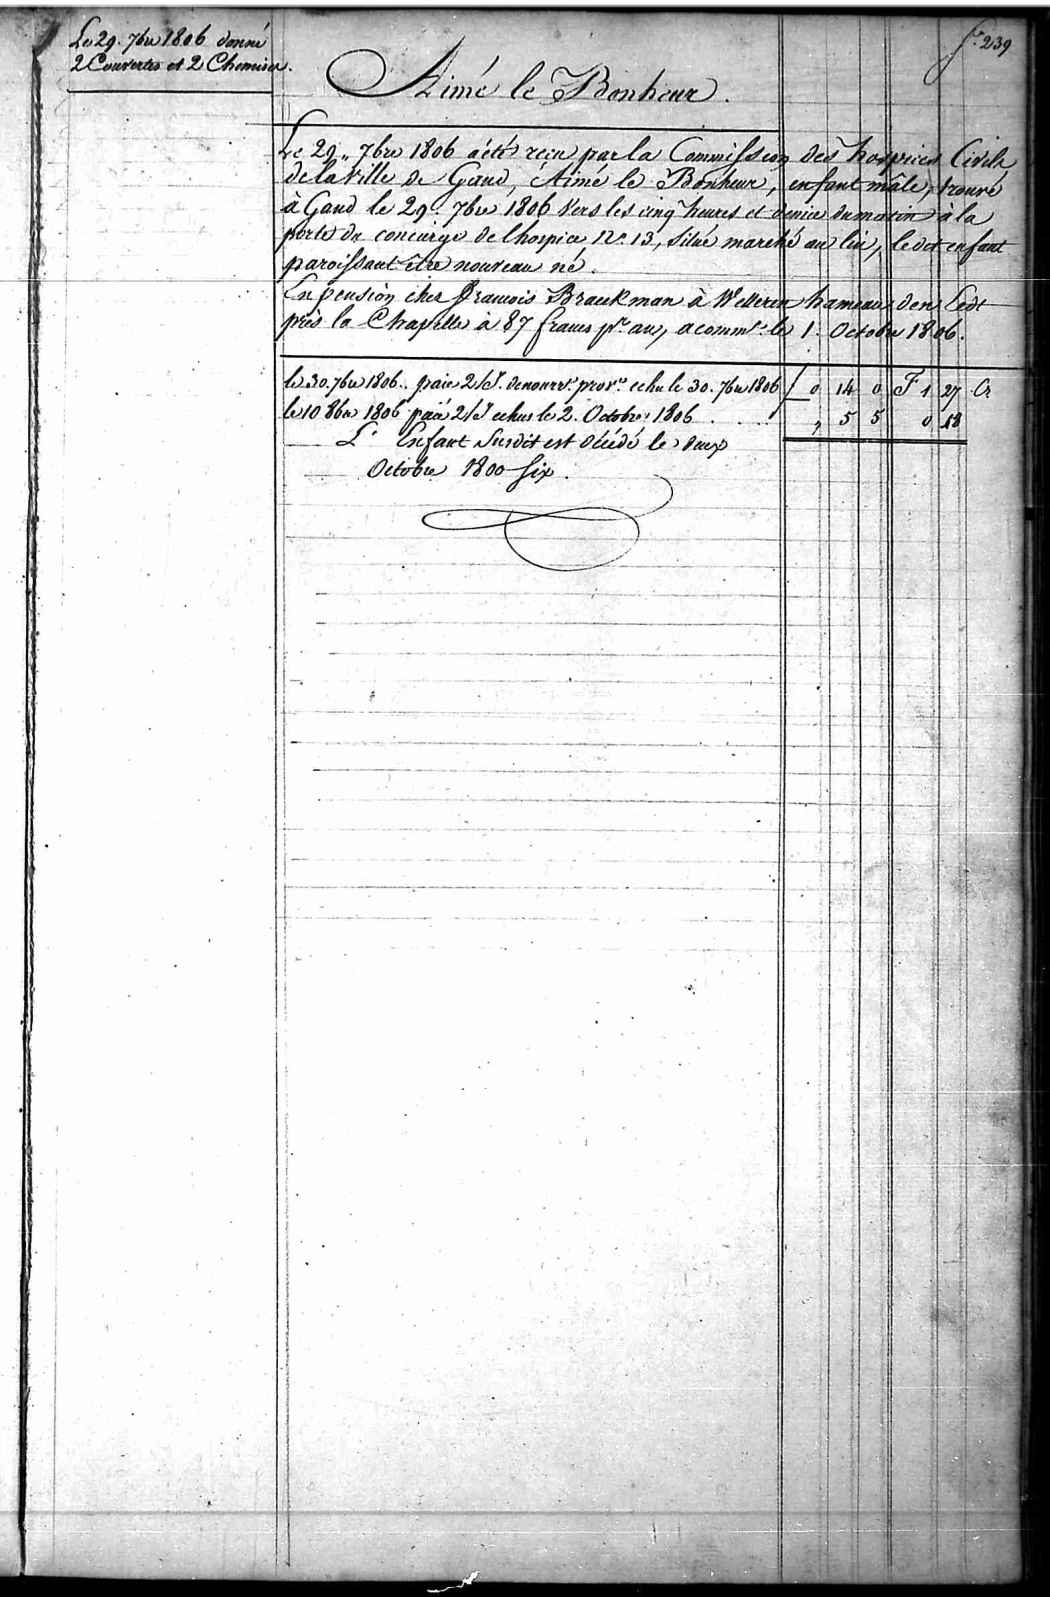 Le 29. 7bre 1806 donné
2 Couvertes et 2 Chemises.
f.° 239
Aimé le Bonheur.
Le 29,, 7bre 1806 a été recu par la Commission des hospices Civils
de la Ville de Gand, Aimé le Bonheur, enfant mâle, trouvé
à Gand le 29. 7bre 1806 Vers les cinq heures et demie du matin à la
porte du concierge de l'hospice N.° 13, Situé marché au lin, le dit enfant
paroissant être nouveau né.
En pension chez francois Braeckman à Wetteren hameau den Cedt
près la Chapelle à 87 francs pr. an, a comm.é le 1. Octobre 1806.
le 30. 7bre 1806. paié de nourr.e prov.re echu le 30. 7bre 1806 £ 0 14 0 F 1 27 Cs
le 10 8bre 1806 paié echus le 2. Octobre 1806 . . . . . , 5 5 0 48
L' Enfant Susdit est décédé le deux
Octobre 1800 Six.